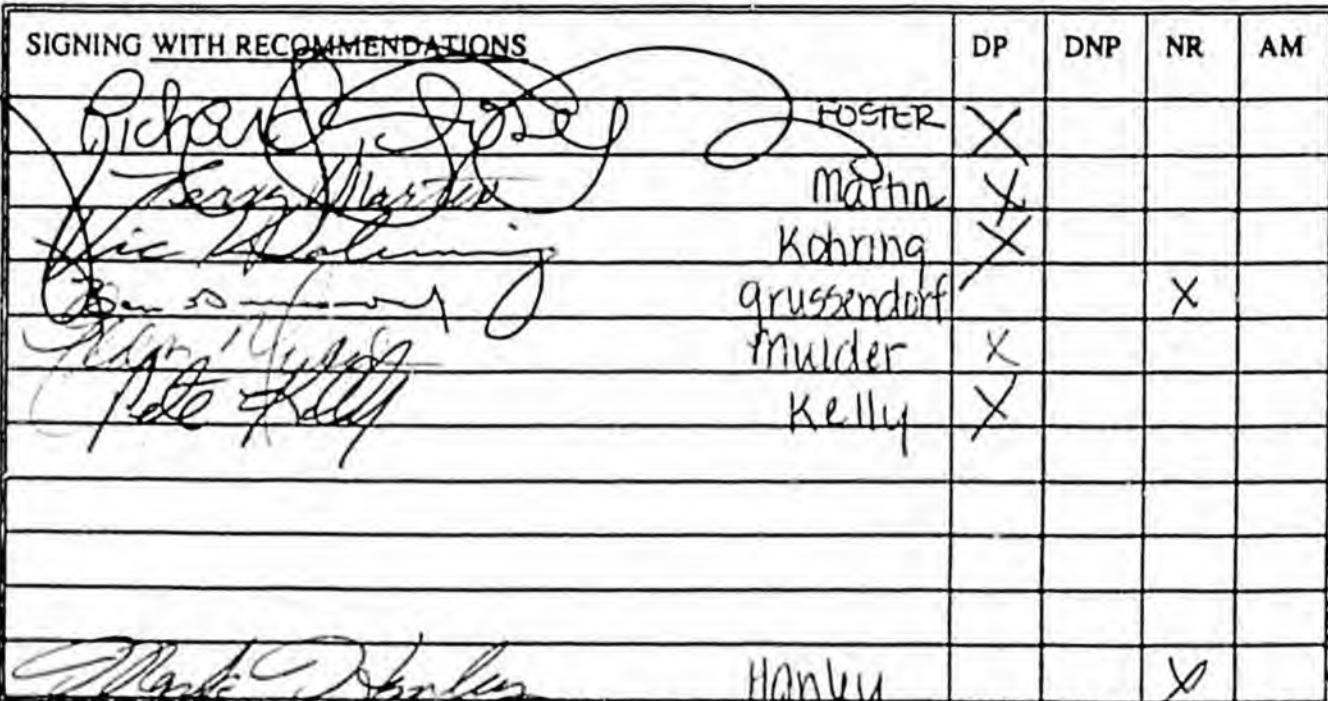 SIGNING WITH RECOMMENDATIONS DP DNP NR AM
Richard Foster FOSTER X
Terry Martin Martin X
Vic Kohring Kohring X
Ben Grussendorf X
Mulder X
Pete Kelly Kelly X
Mark Hanley Hanley X